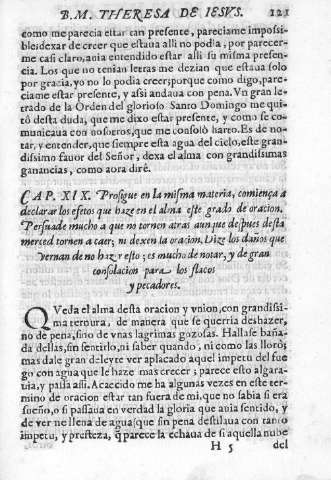 B. M. THERESA DE IESVS. 121
como me parecia estar tan presente, pareciame impossi-
ble: dexar de creer que estaua alli no podia, por parecer-
me casi claro, auia entendido estar alli su misma presen-
cia. Los que no tenian letras me dezian que estaua solo
por gracia, yo no lo podia creer; porque como digo, pare-
ciame estar presente, y assi andaua con pena. Vn gran le-
trado de la Orden del glorioso Santo Domingo me qui-
tò desta duda, que me dixo estar presente, y como se co-
municaua con nosotros, que me consolò harto. Es de no-
tar, y entender, que siempre esta agua del cielo, este gran-
dissimo fauor del Señor, dexa el alma con grandissimas
ganancias, como aora dirè.
CAP. XIX. Prosigue en la misma materia, comiença a
declarar los efetos que haze en el alma este grado de oracion.
Persuade mucho a que no tornen atras aunque despues desta
merced tornen a caer, ni dexen la oracion. Dize los daños que
vernan de no hazer esto; es mucho de notar, y de gran
consolacion para los flacos
y pecadores.
QVeda el alma desta oracion y vnion, con grandissi-
ma ternura, de manera que se querria deshazer,
no de pena, sino de vnas lagrimas gozosas. Hallase baña-
da dellas, sin sentirlo, ni saber quando, ni como las llorò;
mas dale gran deleyte ver aplacado aquel impetu del fue
go con agua que le haze mas crecer; parece esto algara-
uia, y passa assi. Acaecido me ha algunas vezes en este ter-
mino de oracion estar tan fuera de mi, que no sabia si era
sueño, o si passaua en verdad la gloria que auia sentido, y
de ver me llena de agua (que sin pena destilaua con tanto
impetu, y presteza, q̃ parece la echaua de si aquella nube
H 5 del